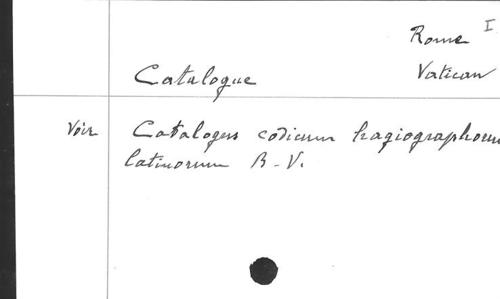 Rome I
Vatican
Catalogue
Voir Catalogus codicum hagiographorum
latinorum B. V.